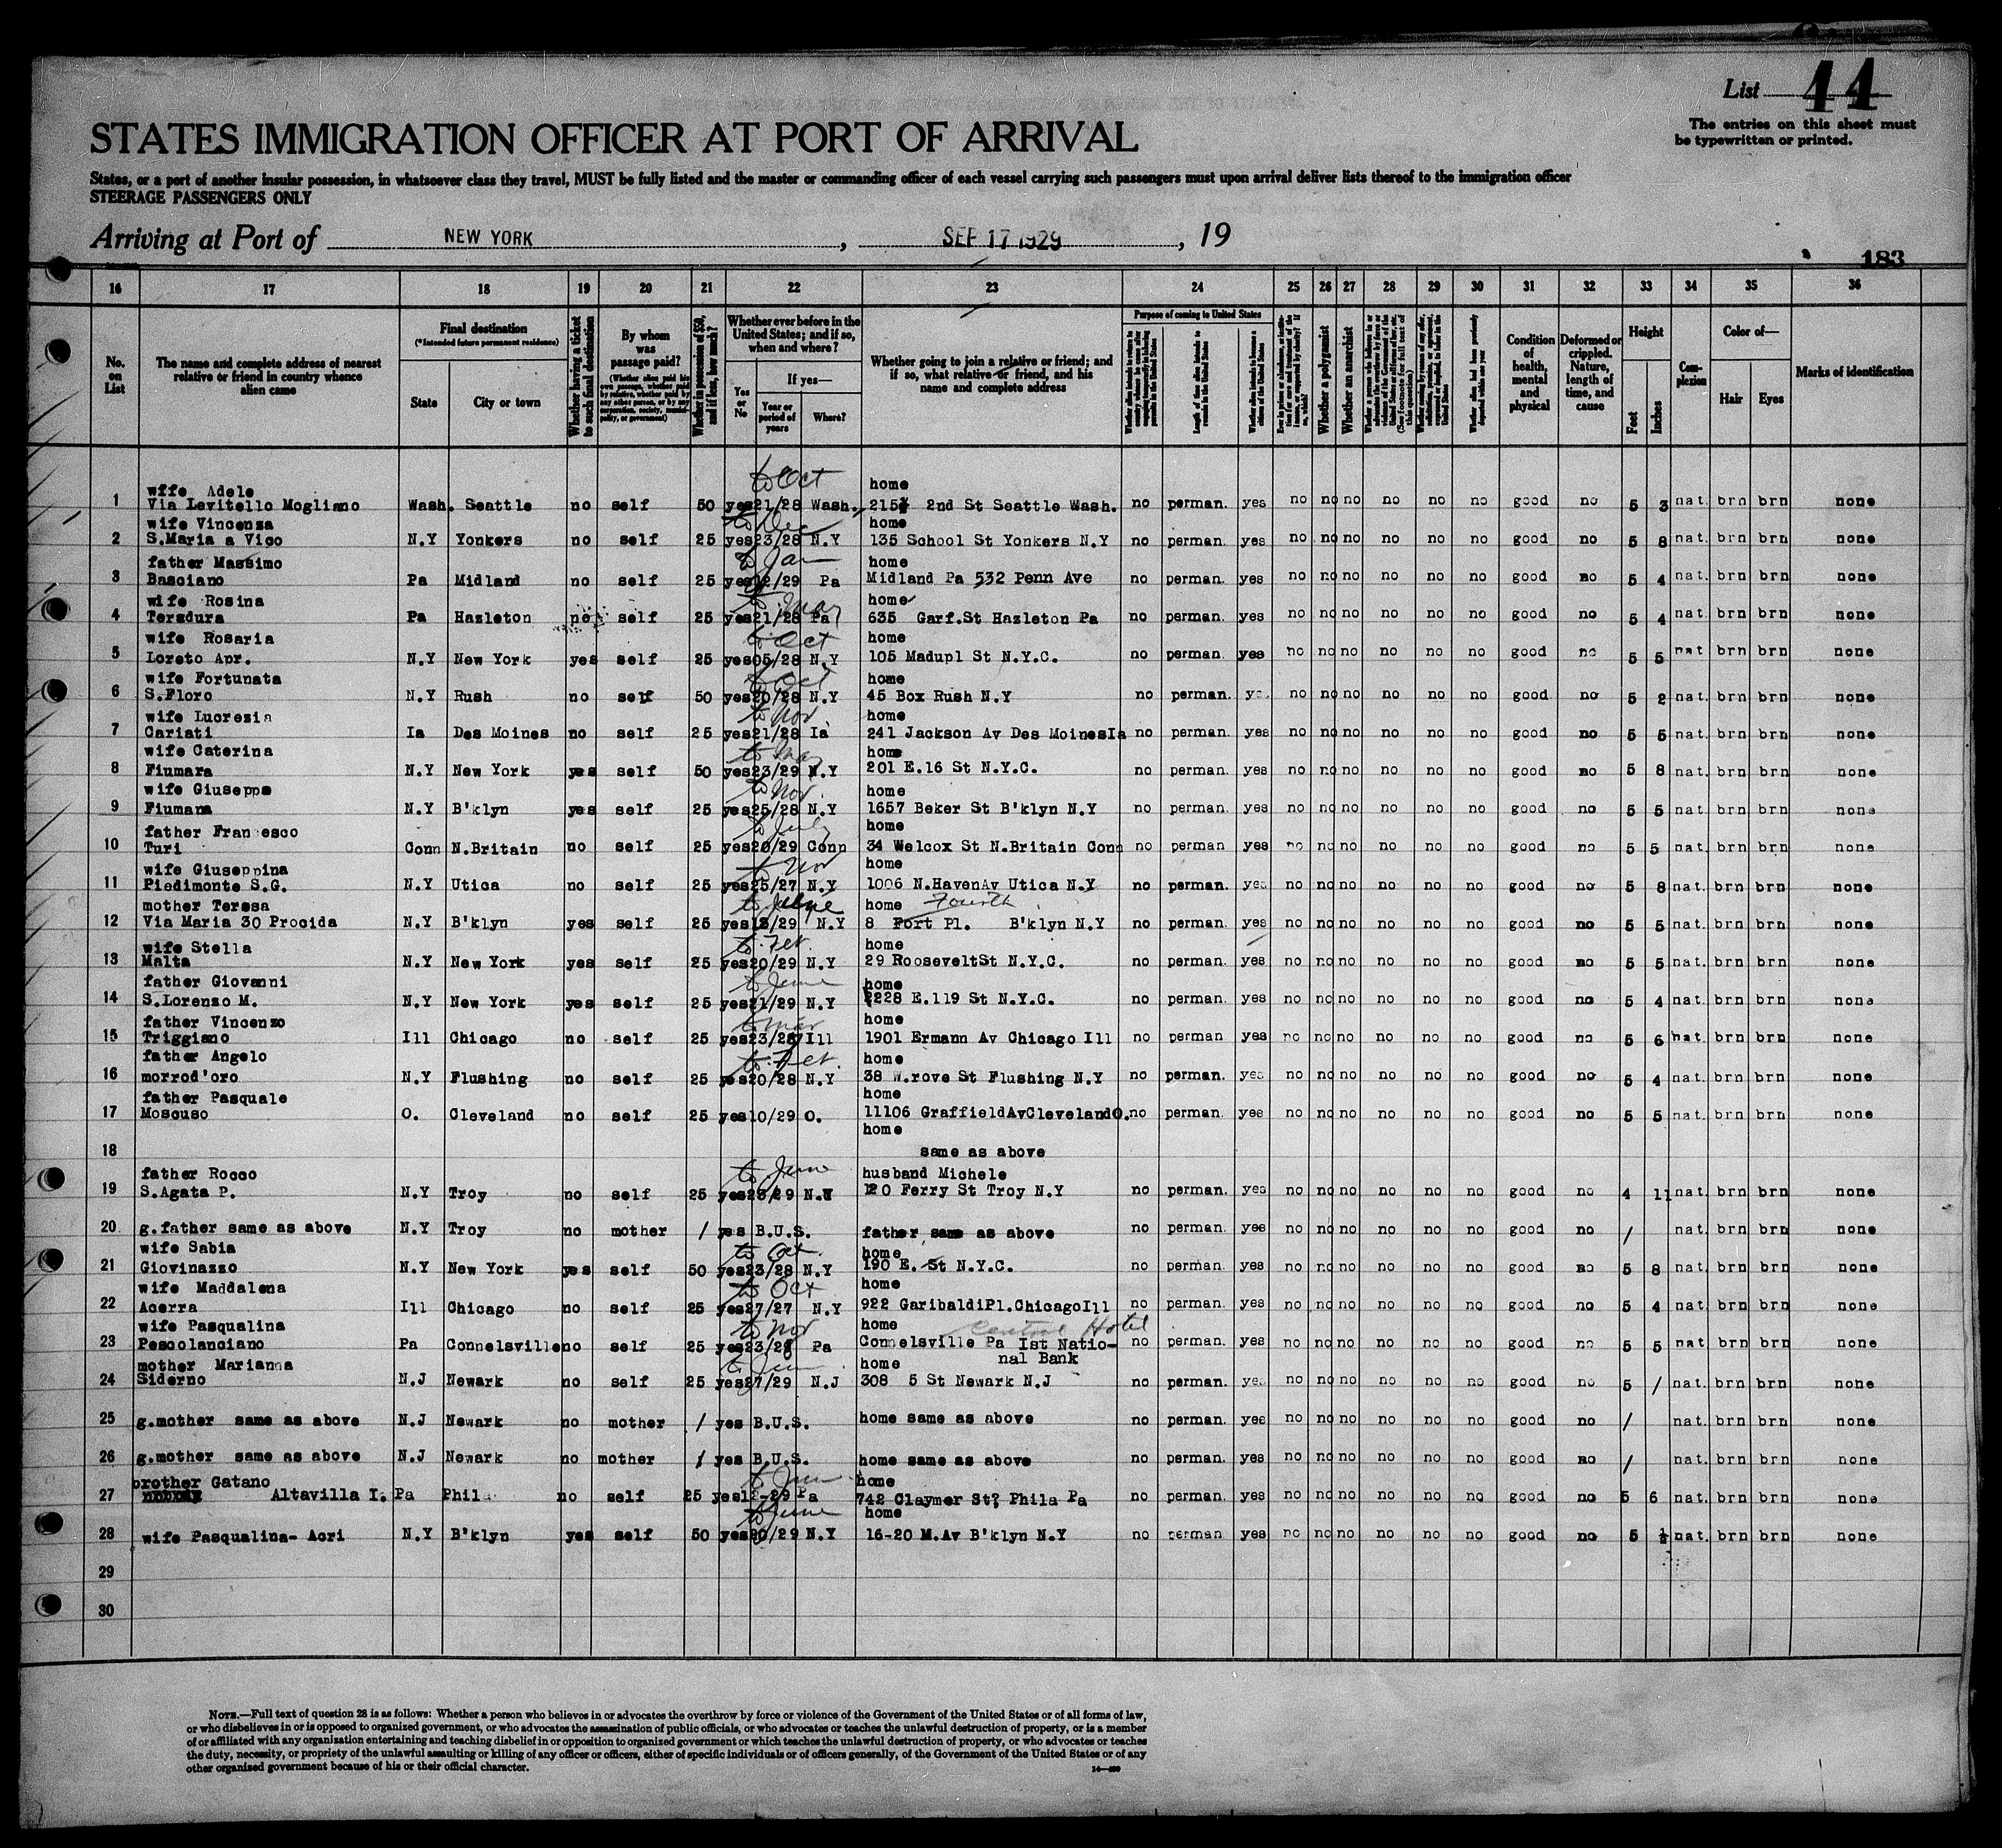 List 44
The entries on this sheet must
be typewritten or printed.
STATES IMMIGRATION OFFICER AT PORT OF ARRIVAL
States, or a port of another insular possession, in whatsoever class they travel, MUST be fully listed and the master or commanding officer of each vessel carrying such passengers must upon arrival deliver lists thereof to the immigration officer
STEERAGE PASSENGERS ONLY
Arriving at Port of NEW YORK, SEP 17 1929, 19
183
16 17 18 19 20 21 22 23 24 25 26 27 28 29 30 31 32 33 34 35 36
No. on List
The name and complete address of nearest relative or friend in country whence alien came
Final destination
(*Intended future permanent residence)
State
City or town
Whether having a ticket to such final destination
By whom was passage paid?
(Whether alien paid his own passage, whether paid by relative, whether paid by any other person, or by any corporation, society, municipality, or government)
Whether in possession of $50, and if less, how much?
Whether ever before in the United States; and if so, when and where?
Yes or No
If yes—
Year or period of years
Where?
Whether going to join a relative or friend; and if so, what relative or friend, and his name and complete address
Purpose of coming to United States
Length of time alien intends to remain in the United States
Whether alien intends to become a citizen of the United States
Whether a polygamist
Whether an anarchist
Condition of health, mental and physical
Deformed or crippled. Nature, length of time, and cause
Height
Feet
Inches
Complexion
Color of—
Hair
Eyes
Marks of identification
to Oct
wffe Adele home
1 Via Levitello Mogliano Wash. Seattle no self 50 yes 21/28 Wash. 2nd St Seattle Wash. no perman. yes no no no no no no good no 5 3 nat. brn brn none
to Dec
wife Vincenza home
2 S.Maria a Vico N.Y Yonkers no self 25 yes 23/28 N.Y 135 School St Yonkers N.Y no perman. yes no no no no no no good no 5 8 nat. brn brn none
to Jan
father Massimo home
3 Basciano Pa Midland no self 25 yes 12/29 Pa Midland Pa 532 Penn Ave no perman. yes no no no no no no good no 5 4 nat. brn brn none
to May
wife Rosina home
4 Teradura Pa Hazleton no self 25 yes 21/28 Pa 635 Garf.St Hazleton Pa no perman. yes no no no no no no good no 5 4 nat. brn brn none
to Oct
wife Rosaria home
5 Loreto Apr. N.Y New York yes self 25 yes 05/28 N.Y 105 Madupl St N.Y.C. no perman. yes no no no no no no good no 5 5 nat brn brn none
to Oct
wife Fortunata home
6 S.Floro N.Y Rush no self 50 yes 20/28 N.Y 45 Box Rush N.Y no perman. yes no no no no no no good no 5 2 nat. brn brn none
to Nov
wife Lucrezia home
7 Cariati Ia Des Moines no self 25 yes 21/28 Ia 241 Jackson Av Des MoinesIa no perman. yes no no no no no no good no 5 5 nat. brn brn none
to
wife Caterina home
8 Fiumara N.Y New York yes self 50 yes 23/29 N.Y 201 E.16 St N.Y.C. no perman. yes no no no no no no good no 5 8 nat. brn brn none
to Nov.
wife Giuseppa home
9 Fiumara N.Y B'klyn yes self 25 yes 25/28 N.Y 1657 Beker St B'klyn N.Y no perman. yes no no no no no no good no 5 5 nat. brn brn none
to July
father Fran esco home
10 Turi Conn N.Britain no self 25 yes 20/29 Conn 34 Welcox St N.Britain Conn no perman yes no no no no no no good no 5 5 nat. brn brn none
to Nov
wife Giuseppina home
11 Piedimonte S.G. N.Y Utica no self 25 yes 25/27 N.Y 1006 N.HavenAv Utica N.Y no perman. yes no no no no no no good no 5 8 nat. brn brn none
to June
mother Teresa home Fourth
12 Via Maria 30 Procida N.Y B'klyn yes self 25 yes /29 N.Y 8 Fort Pl. B'klyn N.Y no perman. yes no no no no no no good no 5 5 nat. brn brn none
to Feb.
wife Stella home
13 Malta N.Y New York yes self 25 yes 20/29 N.Y 29 RooseveltSt N.Y.C. no perman. yes no no no no no no good no 5 5 nat. brn brn none
to June
father Giovanni home
14 S.Lorenzo M. N.Y New York yes self 25 yes 21/29 N.Y 228 E.119 St N.Y.C. no perman. yes no no no no no no good no 5 4 nat. brn brn none
to Mar
father Vincenzo home
15 Triggiano Ill Chicago no self 25 yes 23/28 Ill 1901 Ermann Av Chicago Ill no perman yes no no no no no no good no 5 6 nat. brn brn none
to Feb.
father Angelo home
16 morrod'oro N.Y Flushing no self 25 yes 20/28 N.Y 38 W.rove St Flushing N.Y no perman. yes no no no no no no good no 5 4 nat. brn brn none
father Pasquale home
17 Moscuso O. Cleveland no self 25 yes 10/29 O. 11106 GraffieldAvClevelandO. no perman. yes no no no no no no good no 5 5 nat. brn brn none
home
18 same as above
to June
father Rocco husband Michele
19 S.Agata P. N.Y Troy no self 25 yes /29 N.Y 120 Ferry St Troy N.Y no perman. yes no no no no no no good no 4 11 nat. brn brn none
20 g.father same as above N.Y Troy no mother / yes B.U.S. father same as above no perman. yes no no no no no no good no / nat. brn brn none
to Oct.
wife Sabia home
21 Giovinazzo N.Y New York yes self 50 yes 23/28 N.Y 190 E. St N.Y.C. no perman. yes no no no no no no good no 5 8 nat. brn brn none
to Oct
wife Maddalena home
22 Acerra Ill Chicago no self 25 yes 27/27 N.Y 922 GaribaldiPl.ChicagoIll no perman. yes no no no no no no good no 5 4 nat. brn brn none
to Nov
wife Pasqualina home Central Hotel
23 Pescolanciano Pa Connelsville no self 25 yes 23/28 Pa Connelsville Pa Ist Natio- no perman. yes no no no no no no good no 5 5 nat brn brn none
nal Bank
to Jun
mother Marianna home
24 Siderno N.J Newark no self 25 yes 27/29 N.J 308 5 St Newark N.J no perman. yes no no no no no no good no 5 / nat. brn brn none
25 g.mother same as above N.J Newark no mother / yes B.U.S. home same as above no perman. yes no no no no no no good no / nat. brn brn none
26 g.mother same as above N.J Newark no mother / yes B.U.S. home same as above no perman. yes no no no no no no good no / nat. brn brn none
to Jun
brother Gatano home
27 Altavilla I. Pa Phila no self 25 yes 12-29 Pa 742 Claymer St? Phila Pa no perman. yes no no no no no no good no 5 6 nat. brn brn none
to June
home
28 wife Pasqualina- Acri N.Y B'klyn yes self 50 yes 20/29 N.Y 16-20 M.Av B'klyn N.Y no perman yes no no no no no no good no 5 nat. brn brn none
29
30
NOTE.—Full text of question 28 is as follows: Whether a person who believes in or advocates the overthrow by force or violence of the Government of the United States or of all forms of law,
or who disbelieves in or is opposed to organized government, or who advocates the assassination of public officials, or who advocates or teaches the unlawful destruction of property, or is a member
of or affiliated with any organization entertaining and teaching disbelief in or opposition to organized government or which teaches the unlawful destruction of property, or who advocates or teaches
the duty, necessity, or propriety of the unlawful assaulting or killing of any officer or officers, either of specific individuals or of officers generally, of the Government of the United States or of any
other organized government because of his or their official character.